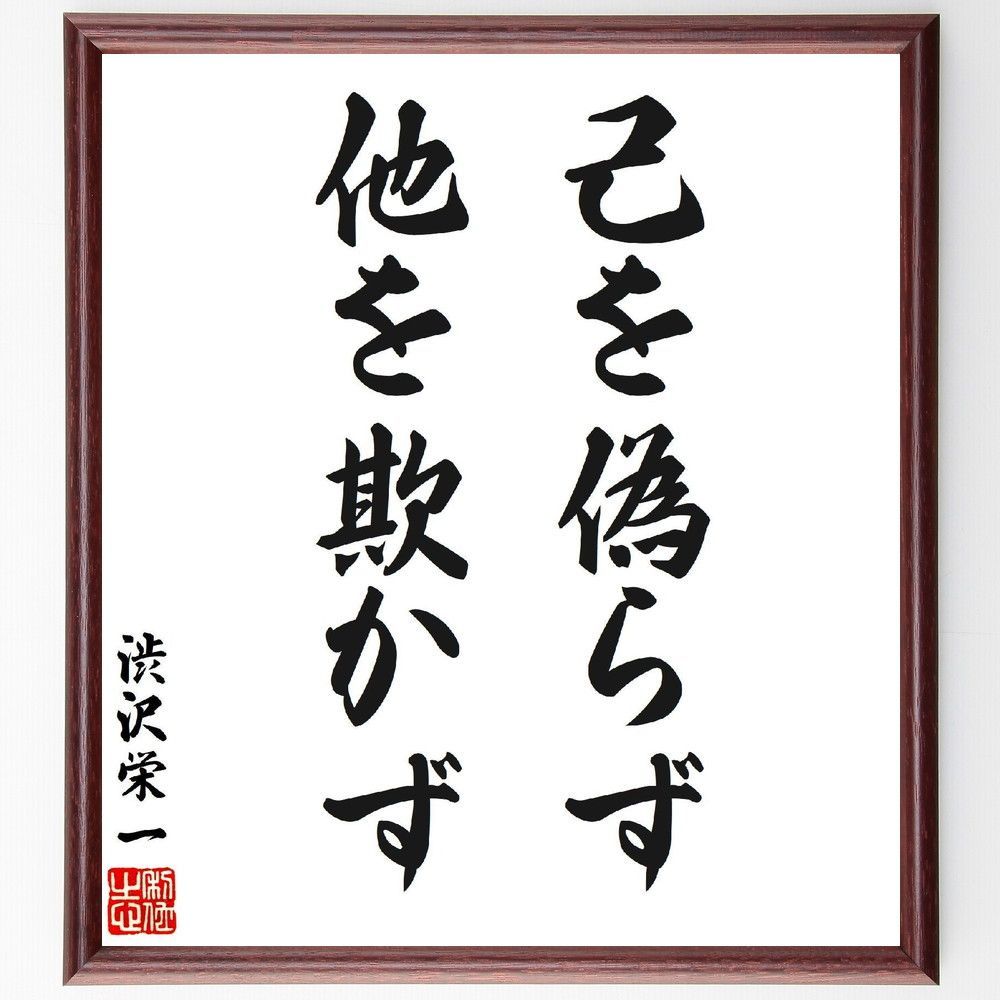 己を偽らず
他を欺かず
渋沢栄一